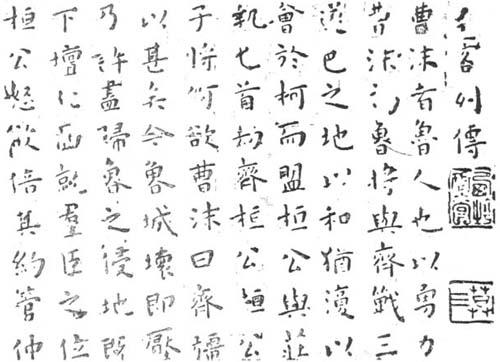 刺客列傳
曹沫者魯人也以勇力
曹沫為魯將與齊戰三
遂邑之地以和猶復以
會於柯而盟桓公與莊
執匕首劫齊桓公桓公
子將何欲曹沫曰齊彊
以甚矣今魯城壞即壓
乃許盡歸魯之侵地既
下壇北面就羣臣之位
桓公怒欲倍其約管仲